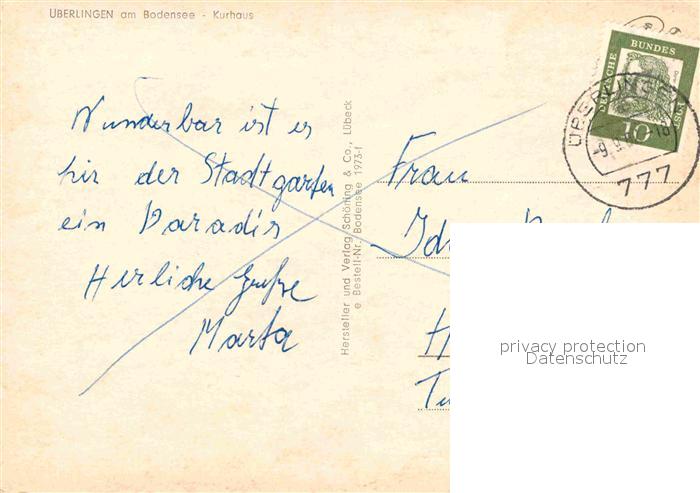 ÜBERLINGEN am Bodensee - Kurhaus
Wunderbar ist es
hir der Stadtgarten
ein Paradis
Herliche Grüße
Marta
Hersteller und Verlag Schöning & Co., Lübeck
e Bestell-Nr. Bodensee 1973-f
Frau
DEUTSCHE BUNDESPOST
10
ÜBERLINGEN
777
privacy protection
Datenschutz